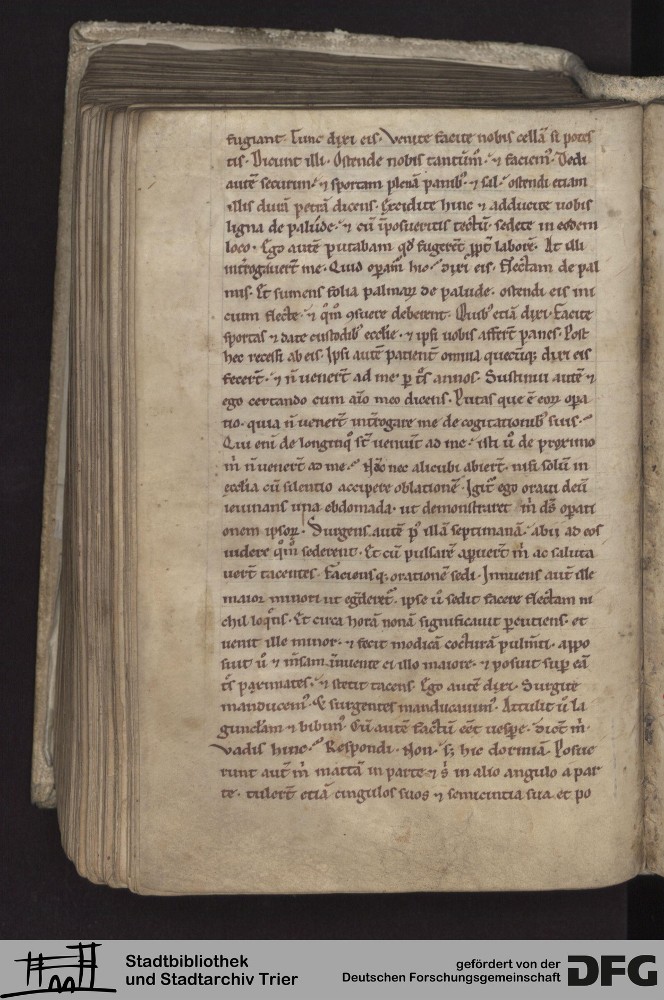 fugiant. Tunc dixi eis. Venite facite nobis cellā si potes
tis. Dicunt illi. Ostende nobis tantūm. ⁊ faciem᷒. Dedi
autē securim. ⁊ sportam plenā panib᷒. ⁊ sal. ostendi etiam
illis durā petrā dicens. Excidite hinc ⁊ adducite uobis
ligna de palude. ⁊ cū īposueritis tectū. sedete in eodem
loco. Ego autē putabam qd̄ fugerēt ꝓpt̄ laborē. At illi
int̄rogauert̄ me. Quid operam᷒ hic. dixi eis. flectam de pal
mis. Et sumens folia palmaꝝ de palude. ostendi eis ini
cium flecte. ⁊ qͦm ꝯsuere deberent. Quib᷒ etiā dixi. Facite
sportas ⁊ date custodib᷒ ecclīe. ⁊ ipsi uobis affert̄ panes. Post
hec recessi ab eis. Ipsi autē patient̄ omnia quecūq; dixi eis
fecert̄. ⁊ ñ uenert̄ ad me. p̱ t̄s annos. Sustinui autē ⁊
ego certando cum aīo meo dicens. Putas que ē eoꝝ opa
tio. quia ñ uenert̄ int̄rogare me de cogitationib᷒ suis.
Qui eni de longinq᷒ st̄ ueniūt ad me. isti ů de proximo
m̄ ñ uenert̄ ad me. nec alicubi abiert̄. nisi solū in
ecclīa cū silentio accipere oblationē. Igit᷒ ego oraui deū
ieiunans una ebdomada. ut demonstraret m̄ ds̄ operati
onem ipsoꝝ. Surgens autē p᷒ illā septimanā. abii ad eos
uidere qͦm sederent. Et cū pulsarē aperuert̄ m̄ ac saluta
uert̄ tacentes. Faciensq; orationē sedi. Innuens aut̄ ille
maior minori ut eg̃deret᷒. ipse ů sedit facere flectam ni
chil loq̄ns. Et circa horā nonā significauit percutiens. et
uenit ille minor. ⁊ fecit modicā cocturā pulm̄ti. appo
suit ů ⁊ m̄sam innuente ei illo maiore. ⁊ posuit sup̱ eā
t̄s paximates. ⁊ stetit tacens. Ego autē dixi. Surgite
manducem᷒. Et surgentes manducauim᷒. Attulit ů la
gunclam ⁊ bibim᷒. Cū autē factū eēt uesp̱e. dict̄ m̄.
Vadis hinc. Respondi. Non. s; hic dormiā. Posue
runt aut̄ m̄ mattā in parte ⁊ s᷒ in alio angulo a par
te. tulert̄ etiā cingulos suos ⁊ semicintia sua et po
Stadtbibliothek
und Stadtarchiv Trier
gefördert von der
Deutschen Forschungsgemeinschaft
DFG